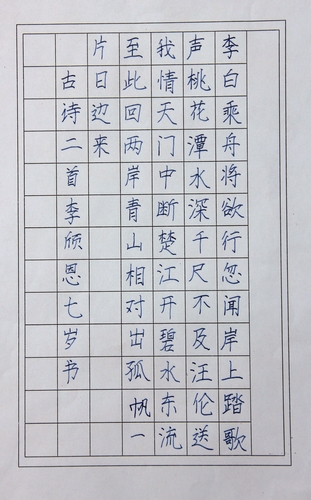 李白乘舟将欲行忽闻岸上踏歌
声桃花潭水深千尺不及汪伦送
我情天门中断楚江开碧水东流
至此回两岸青山相对出孤帆一
片日边来
古诗二首李颀恩七岁书